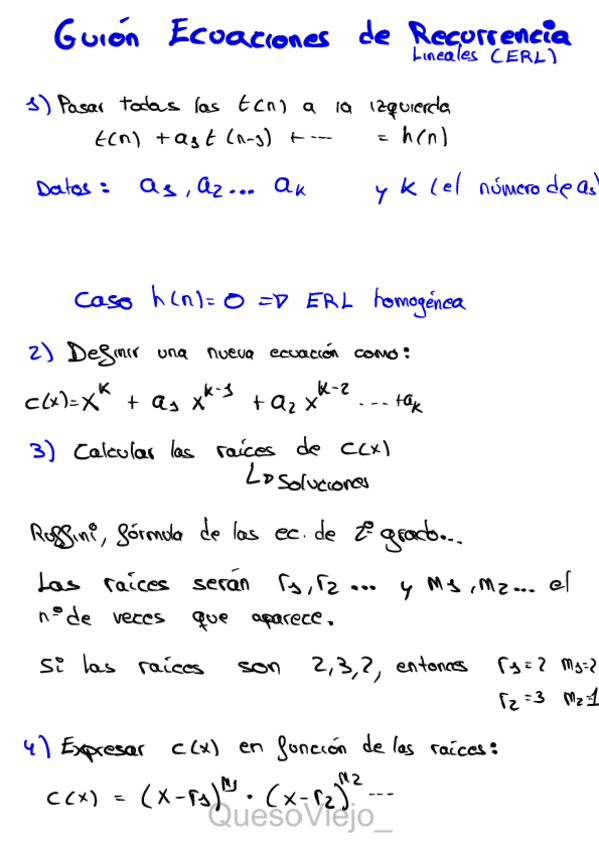 Guión Ecuaciones de Recurrencia
Lineales (ERL)
1) Pasar todas las t(n) a la izquierda
t(n) + a₁t (n-1) + ... = h(n)
Datos: a₁, a₂... aₖ y K (el número de as)
Caso h(n) = 0 => ERL homogénea
2) Definir una nueva ecuación como:
c(x)=x^K + a₁ x^(K-1) + a₂ x^(K-2) ... +aₖ
3) Calcular las raíces de C(x)
↳ Soluciones
Ruffini, fórmula de las ec. de 2º grado...
Las raíces serán r₁, r₂ ... y m₁, m₂... el
nº de veces que aparece.
Si las raíces son 2,3,2, entonces r₁=2 m₁=2
r₂=3 m₂=1
4) Expresar c(x) en función de las raíces:
c(x) = (x-r₁)^m₁ · (x-r₂)^m₂ ...
QuesoViejo_